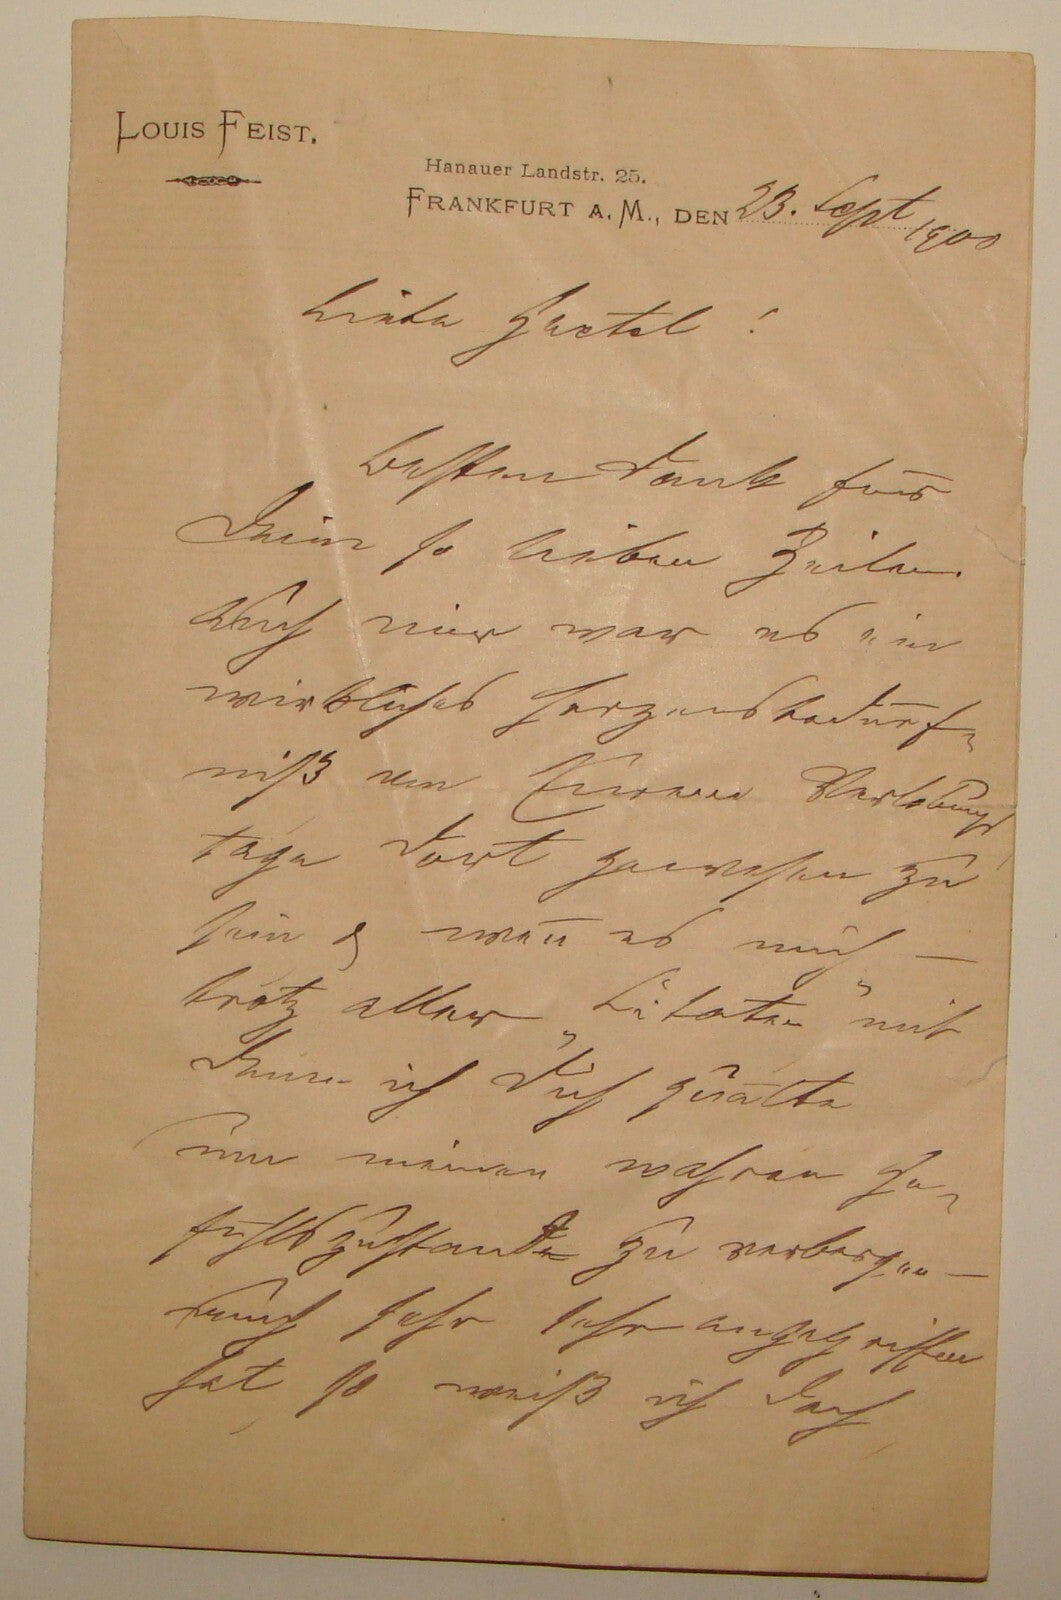 LOUIS FEIST.
Hanauer Landstr. 25.
FRANKFURT A. M., DEN 23. Sept 1900
Liebe Gretel !
Besten Dank für
Deine so lieben Zeilen.
Auch mir war es ein
wirkliches Herzensbedürf-
niß an Eurem Verlobungs
tage dort gewesen zu
sein & wenn es mich —
trotz aller „ “ mit
denen ich Dich quälte
um meinen wahren Ge-
fühlszustand zu verbergen —
auch sehr sehr angegriffen
hat so weiß ich doch